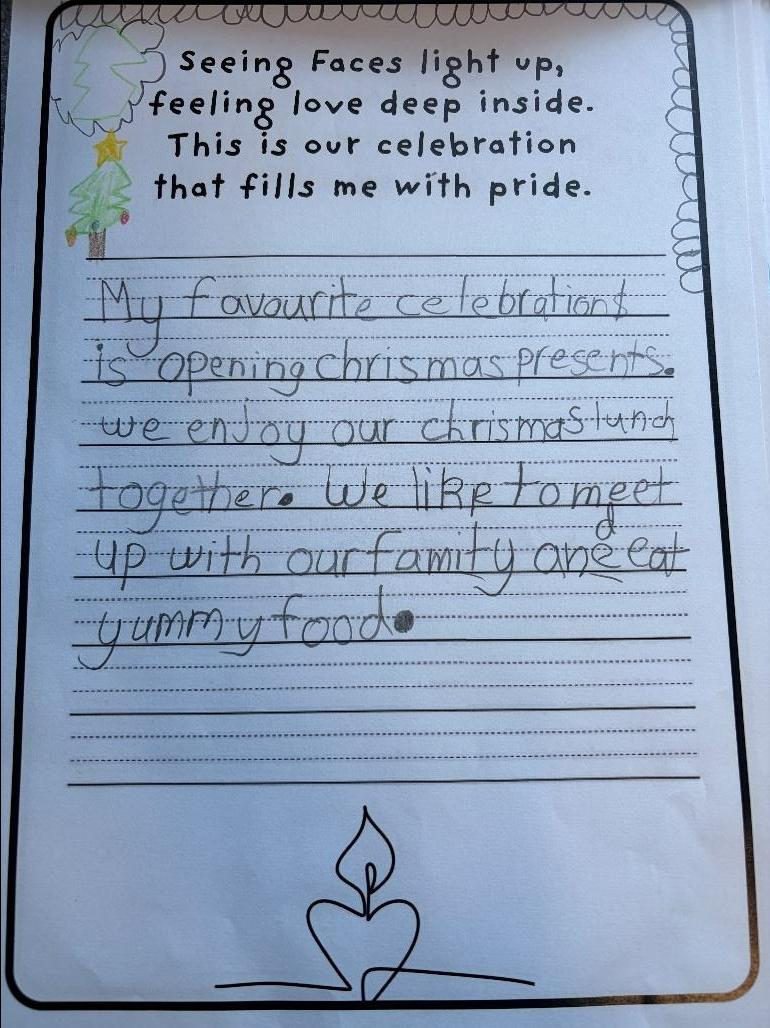 Seeing Faces light up,
feeling love deep inside.
This is our celebration
that fills me with pride.
My favourite celebrations
is opening chrismas presents.
we enjoy our chrismas lunch
together. We like to meet
up with our family and eat
yummy food.